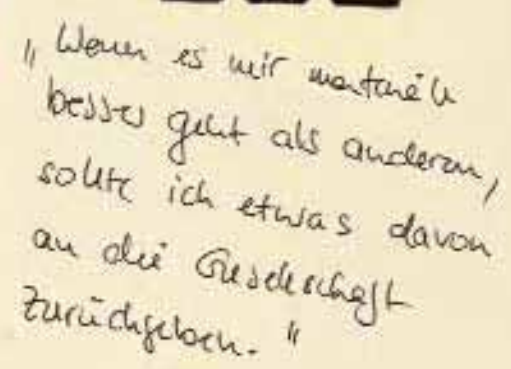 „Wenn es mir monetär
besser geht als anderen,
sollte ich etwas davon
an die Gesellschaft
zurückgeben."